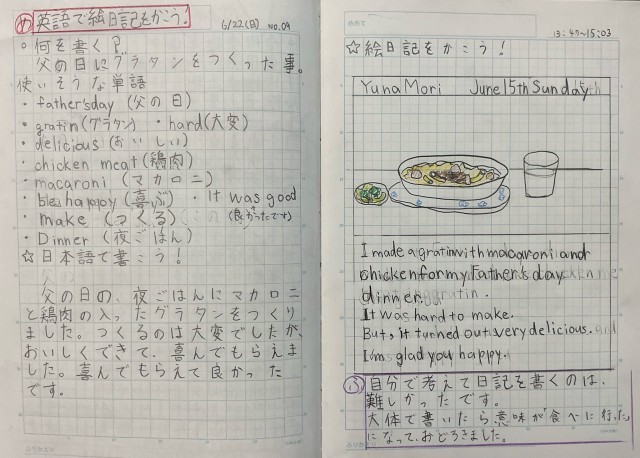 め 英語で絵日記をかこう！ 6/22(日) NO.09
・何を書く？..
父の日にグラタンをつくった事。
使いそうな単語
・father'sday (父の日)
・gratin(グラタン) ・hard(大変)
・delicious(おいしい)
・chicken meat(鶏肉)
・macaroni (マカロニ)
・be happy(喜ぶ) ・It was good
・make (つくる) (良かったです)
・Dinner (夜ごはん)
☆日本語で書こう！
父の日の、夜ごはんにマカロニ
と鶏肉の入ったグラタンをつくり
ました。つくるのは大変でしたが、
おいしくできて、喜んでもらえま
した。喜んでもらえて良かった
です。
13:47~15:03
☆絵日記をかこう！
Yuna Mori June 15th Sunday
I made a gratin with macaroni and
chicken for my Father's day
dinner.
It was hard to make.
But, it turned out very delicious.
I'm glad you happy.
ふ 自分で考えて日記を書くのは、
難しかったです。
大体で書いたら意味が「食べに行った」
になって、おどろきました。